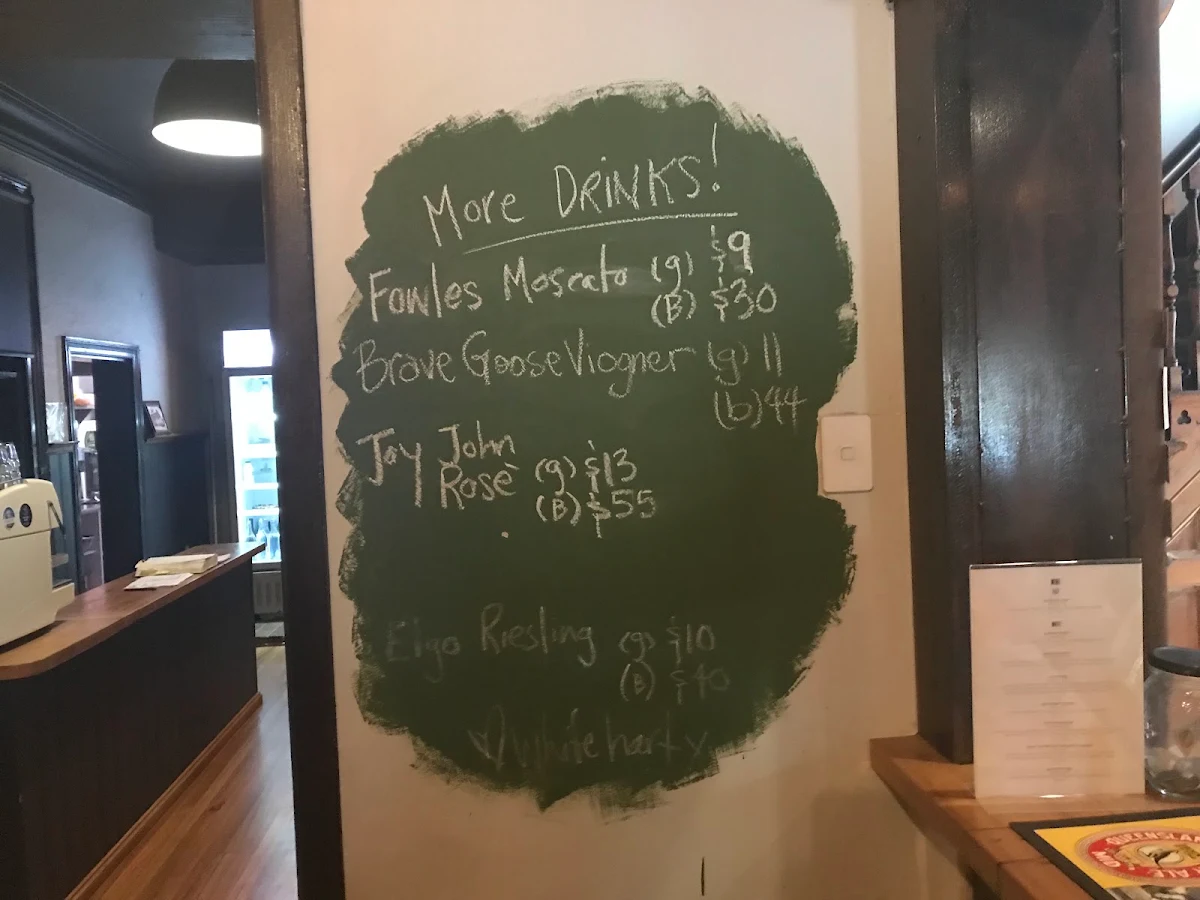 More DRINKS!
Fowles Moscato (g) $9
(B) $30
Brave Goose Viogner (g) 11
(b) 44
Jay John
Rosè (g) $13
(B) $55
Elgo Riesling (g) $10
(B) $40
QUEENSLA